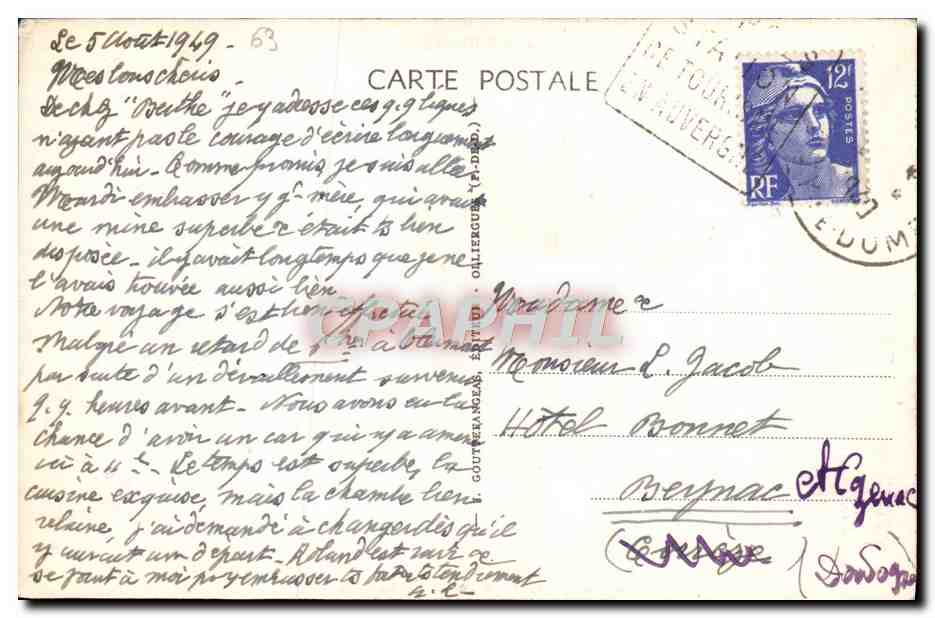 Le 5 Août 1949 - 63
Mes bons chéris -
De chez "Berthe" je v adresse ces q.q lignes
n'ayant pas le courage d'écrire longuement
aujourd'hui - Comme promis, je suis allé
Mardi embrasser gd-mère, qui avait
une mine superbe & était ts bien
disposée - il y avait longtemps que je ne
l'avais trouvée aussi bien
Notre voyage s'est bien effectué
Malgré un retard de à Clermont
par suite d'un déraillement survenu
q.q. heures avant - Nous avons eu la
chance d'avoir un car qui n/ a amené
ici à 4h - Le temps est superbe, la
cuisine exquise, mais la chambre bien
, j'ai demandé à changer dès qu'il
y aurait un départ - Roland est ravi &
se joint à moi pr v embrasser ts tendrement
CARTE POSTALE
GOUTTEFANGEAS, ÉDITEUR - OLLIERGUES (P.-DE-D.)
DE TOUR
EN AUVERG
E-DOM
12F
POSTES
RF
CPAPHIL
Madame &
Monsieur L. Jacob
Hôtel Bonnet
Beynac
(Corrèze)
(Dordogne)